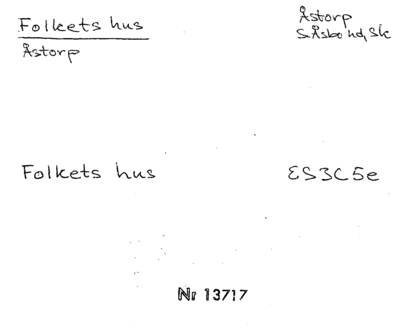 Folkets hus
Åstorp
Åstorp
S. Åsbo hd, Sk
Folkets hus
ES3C5e
Nr 13717